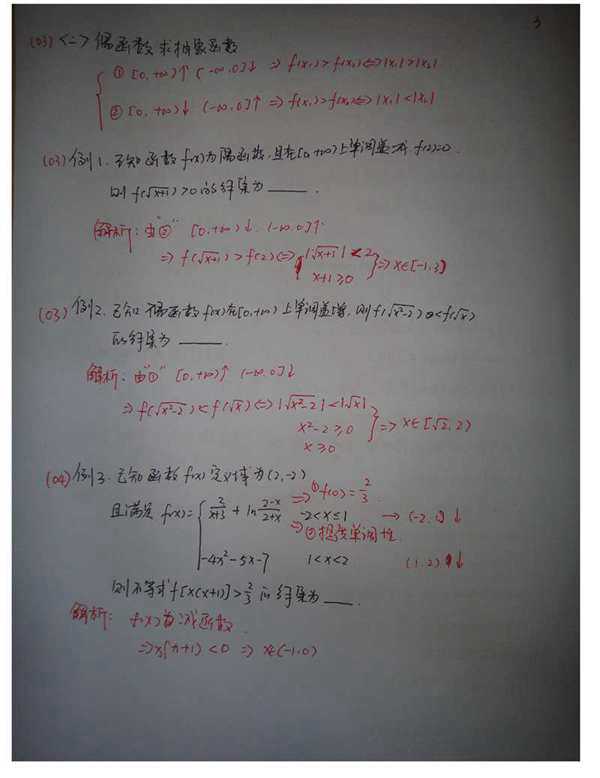 3
(03) <二> 偶函数求抽象函数
① [0,+∞)↑ (-∞,0]↓ ⇒ f(x₁)>f(x₂)⇔|x₁|>|x₂|
② [0,+∞)↓ (-∞,0]↑ ⇒ f(x₁)>f(x₂)⇔|x₁|<|x₂|
(03) 例1. 已知函数f(x)为偶函数,且在[0,+∞)上单调递减,f(2)=0.
则f(√(x+1))>0的解集为____.
解析:由"②" [0,+∞)↓.(-∞,0]↑
⇒ f(√(x+1))>f(2)⇔ |√(x+1)|<2
x+1≥0 } ⇒ x∈[-1,3)
(03) 例2. 已知偶函数f(x)在[0,+∞)上单调递增,则f(√(x²-2))<f(√x)
的解集为____.
解析:由"①" [0,+∞)↑ (-∞,0]↓
⇒ f(√(x²-2))<f(√x)⇔|√(x²-2)|<|√x|
x²-2≥0 } ⇒ x∈[√2,2)
x≥0
(04) 例3. 已知函数f(x)定义域为(2,-2)
⇒ ① f(0)=2/3
且满足 f(x)={ 2/(x+3) + ln (2-x)/(2+x) -2<x≤1 → (-2,1]↓
⇒ ② 提类单调性
-4x²-5x-7 1<x<2 (1,2)↓
则不等式f[x(x+1)]>2/3的解集为___.
解析: f(x)为减函数.
⇒x(x+1)<0 ⇒ x∈(-1,0)